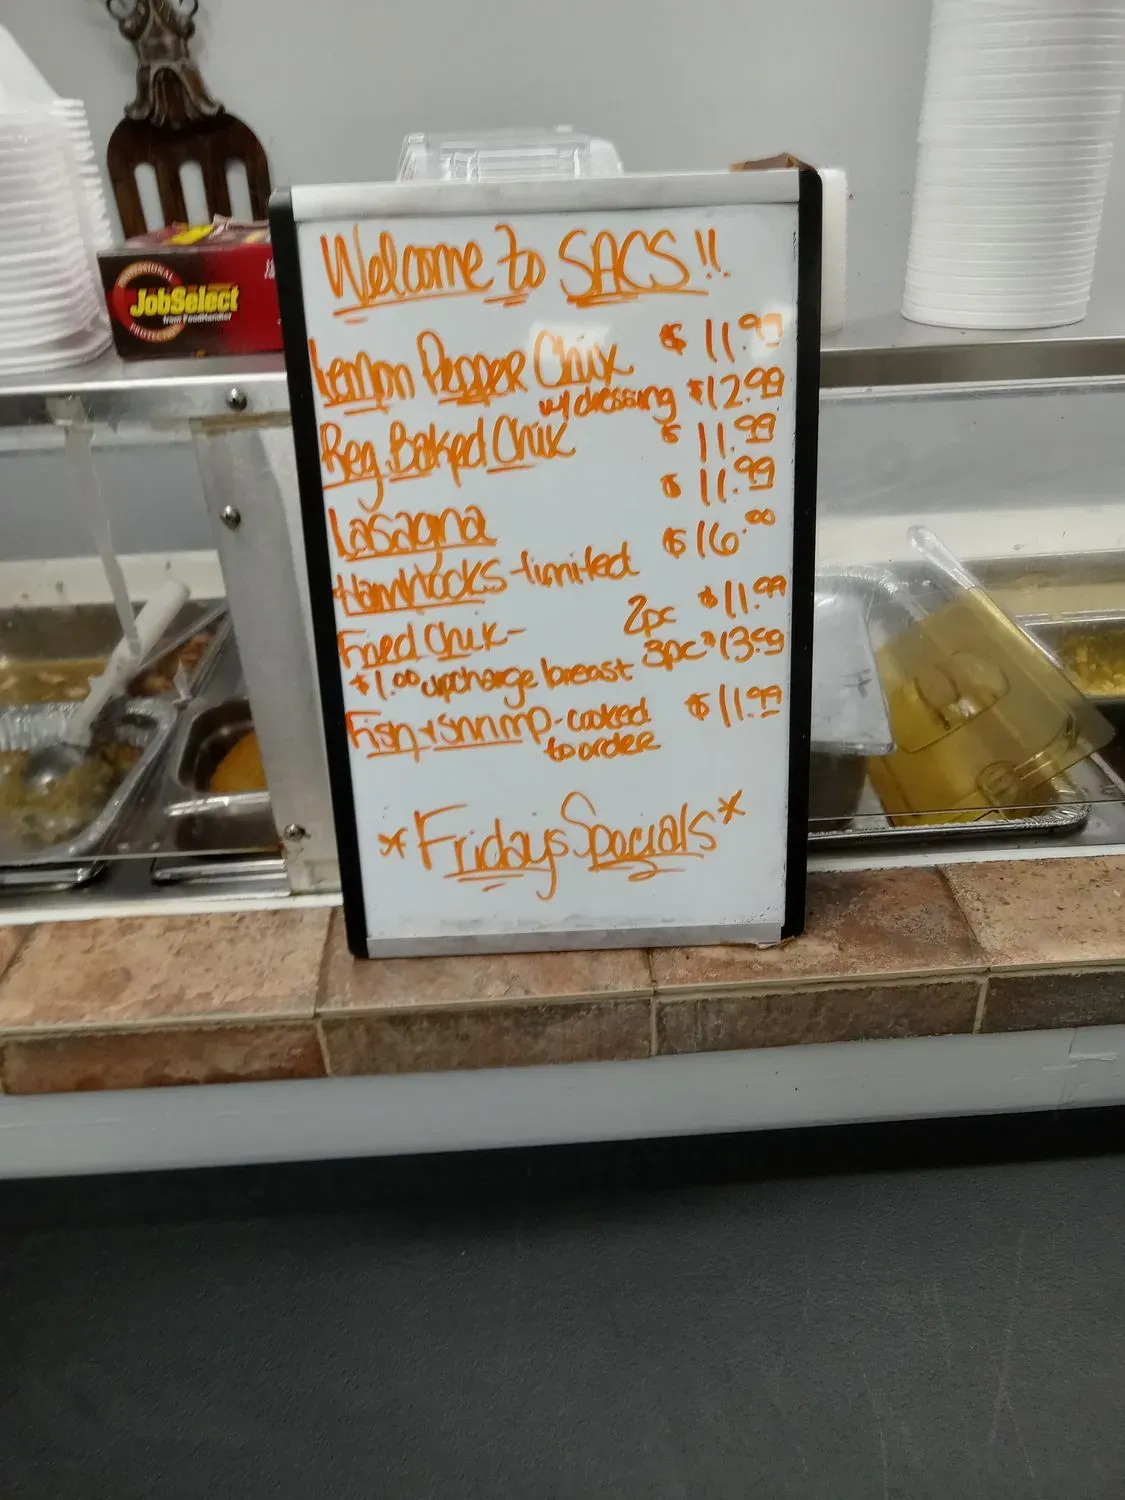 Welcome to SACS!!
Lemon Pepper Chix $11.99
w/dressing $12.99
Reg. Baked Chix $11.99
Lasagna $11.99
Hamhocks-limited $16.00
Fried Chix- 2pc $11.99
$1.00 upcharge breast 3pc $13.99
Fish + Shrimp-cooked $11.99
to order
*Fridays Specials*
PROFESSIONAL
JobSelect
from FoodHandler